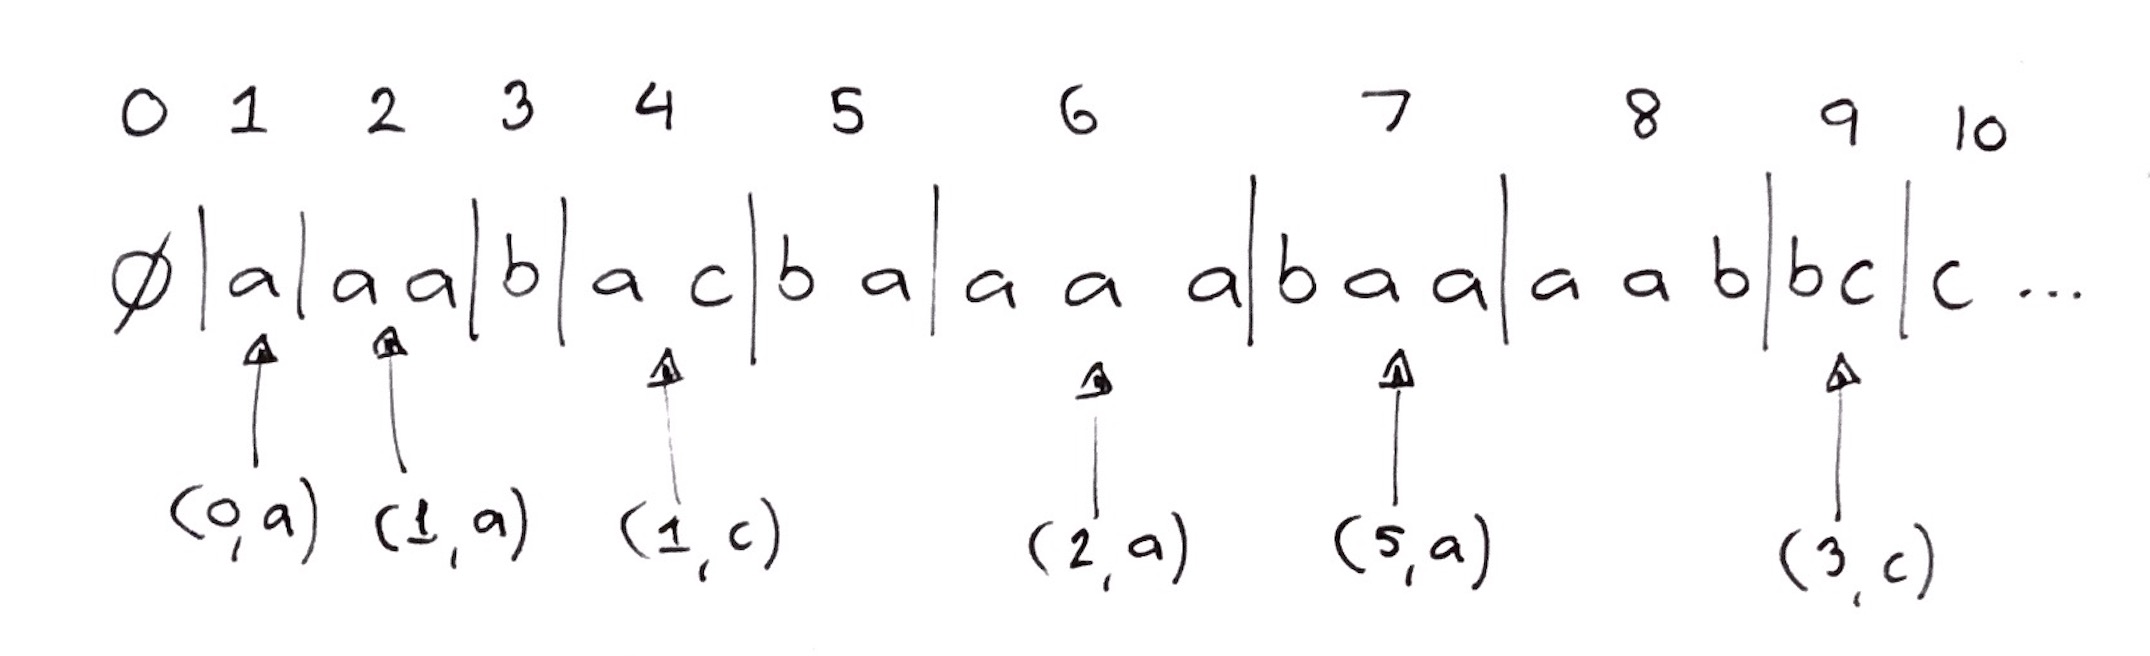 0 1 2 3 4 5 6 7 8 9 10
∅|a|a a|b|a c|b a|a a a|b a a|a a b|b c|c ...
(0,a) (1,a) (1,c) (2,a) (5,a) (3,c)